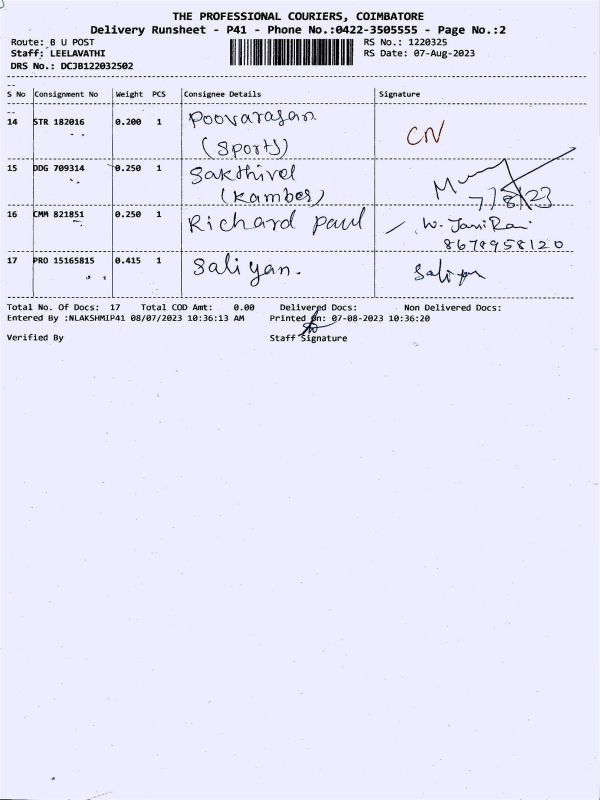 THE PROFESSIONAL COURIERS, COIMBATORE
Delivery Runsheet - P41 - Phone No.:0422-3505555 - Page No.:2
Route: B U POST
RS No.: 1220325
Staff: LEELAVATHI
RS Date: 07-Aug-2023
DRS No.: DCJB122032502
S No Consignment No Weight PCS Consignee Details Signature
14 STR 182016 0.200 1 Poovarasan
(Sports) CN
15 DDG 709314 0.250 1 Sakthivel
(Kamber) 7/8/23
16 CMM 821851 0.250 1 Richard Paul W. Jani Rai
8678958120
17 PRO 15165815 0.415 1 Saliyan.
Total No. Of Docs: 17 Total COD Amt: 0.00 Delivered Docs: Non Delivered Docs:
Entered By :NLAKSHMIP41 08/07/2023 10:36:13 AM Printed On: 07-08-2023 10:36:20
Verified By Staff Signature